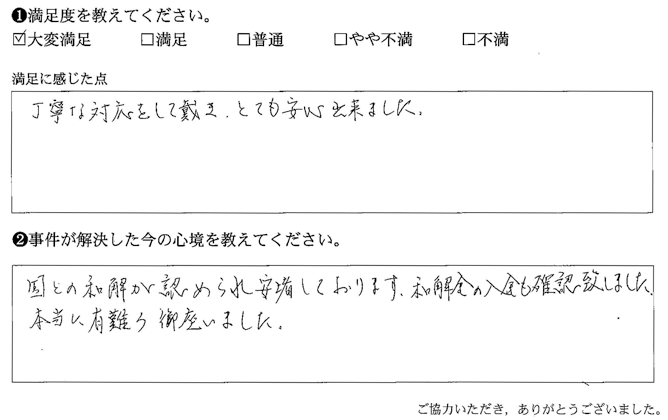 ❶満足度を教えてください。
☑大変満足 □満足 □普通 □やや不満 □不満
満足に感じた点
丁寧な対応をして戴き、とても安心出来ました。
❷事件が解決した今の心境を教えてください。
国との和解が認められ安堵しております。和解金の入金も確認致しました。
本当に有難う御座いました。
ご協力いただき，ありがとうございました。